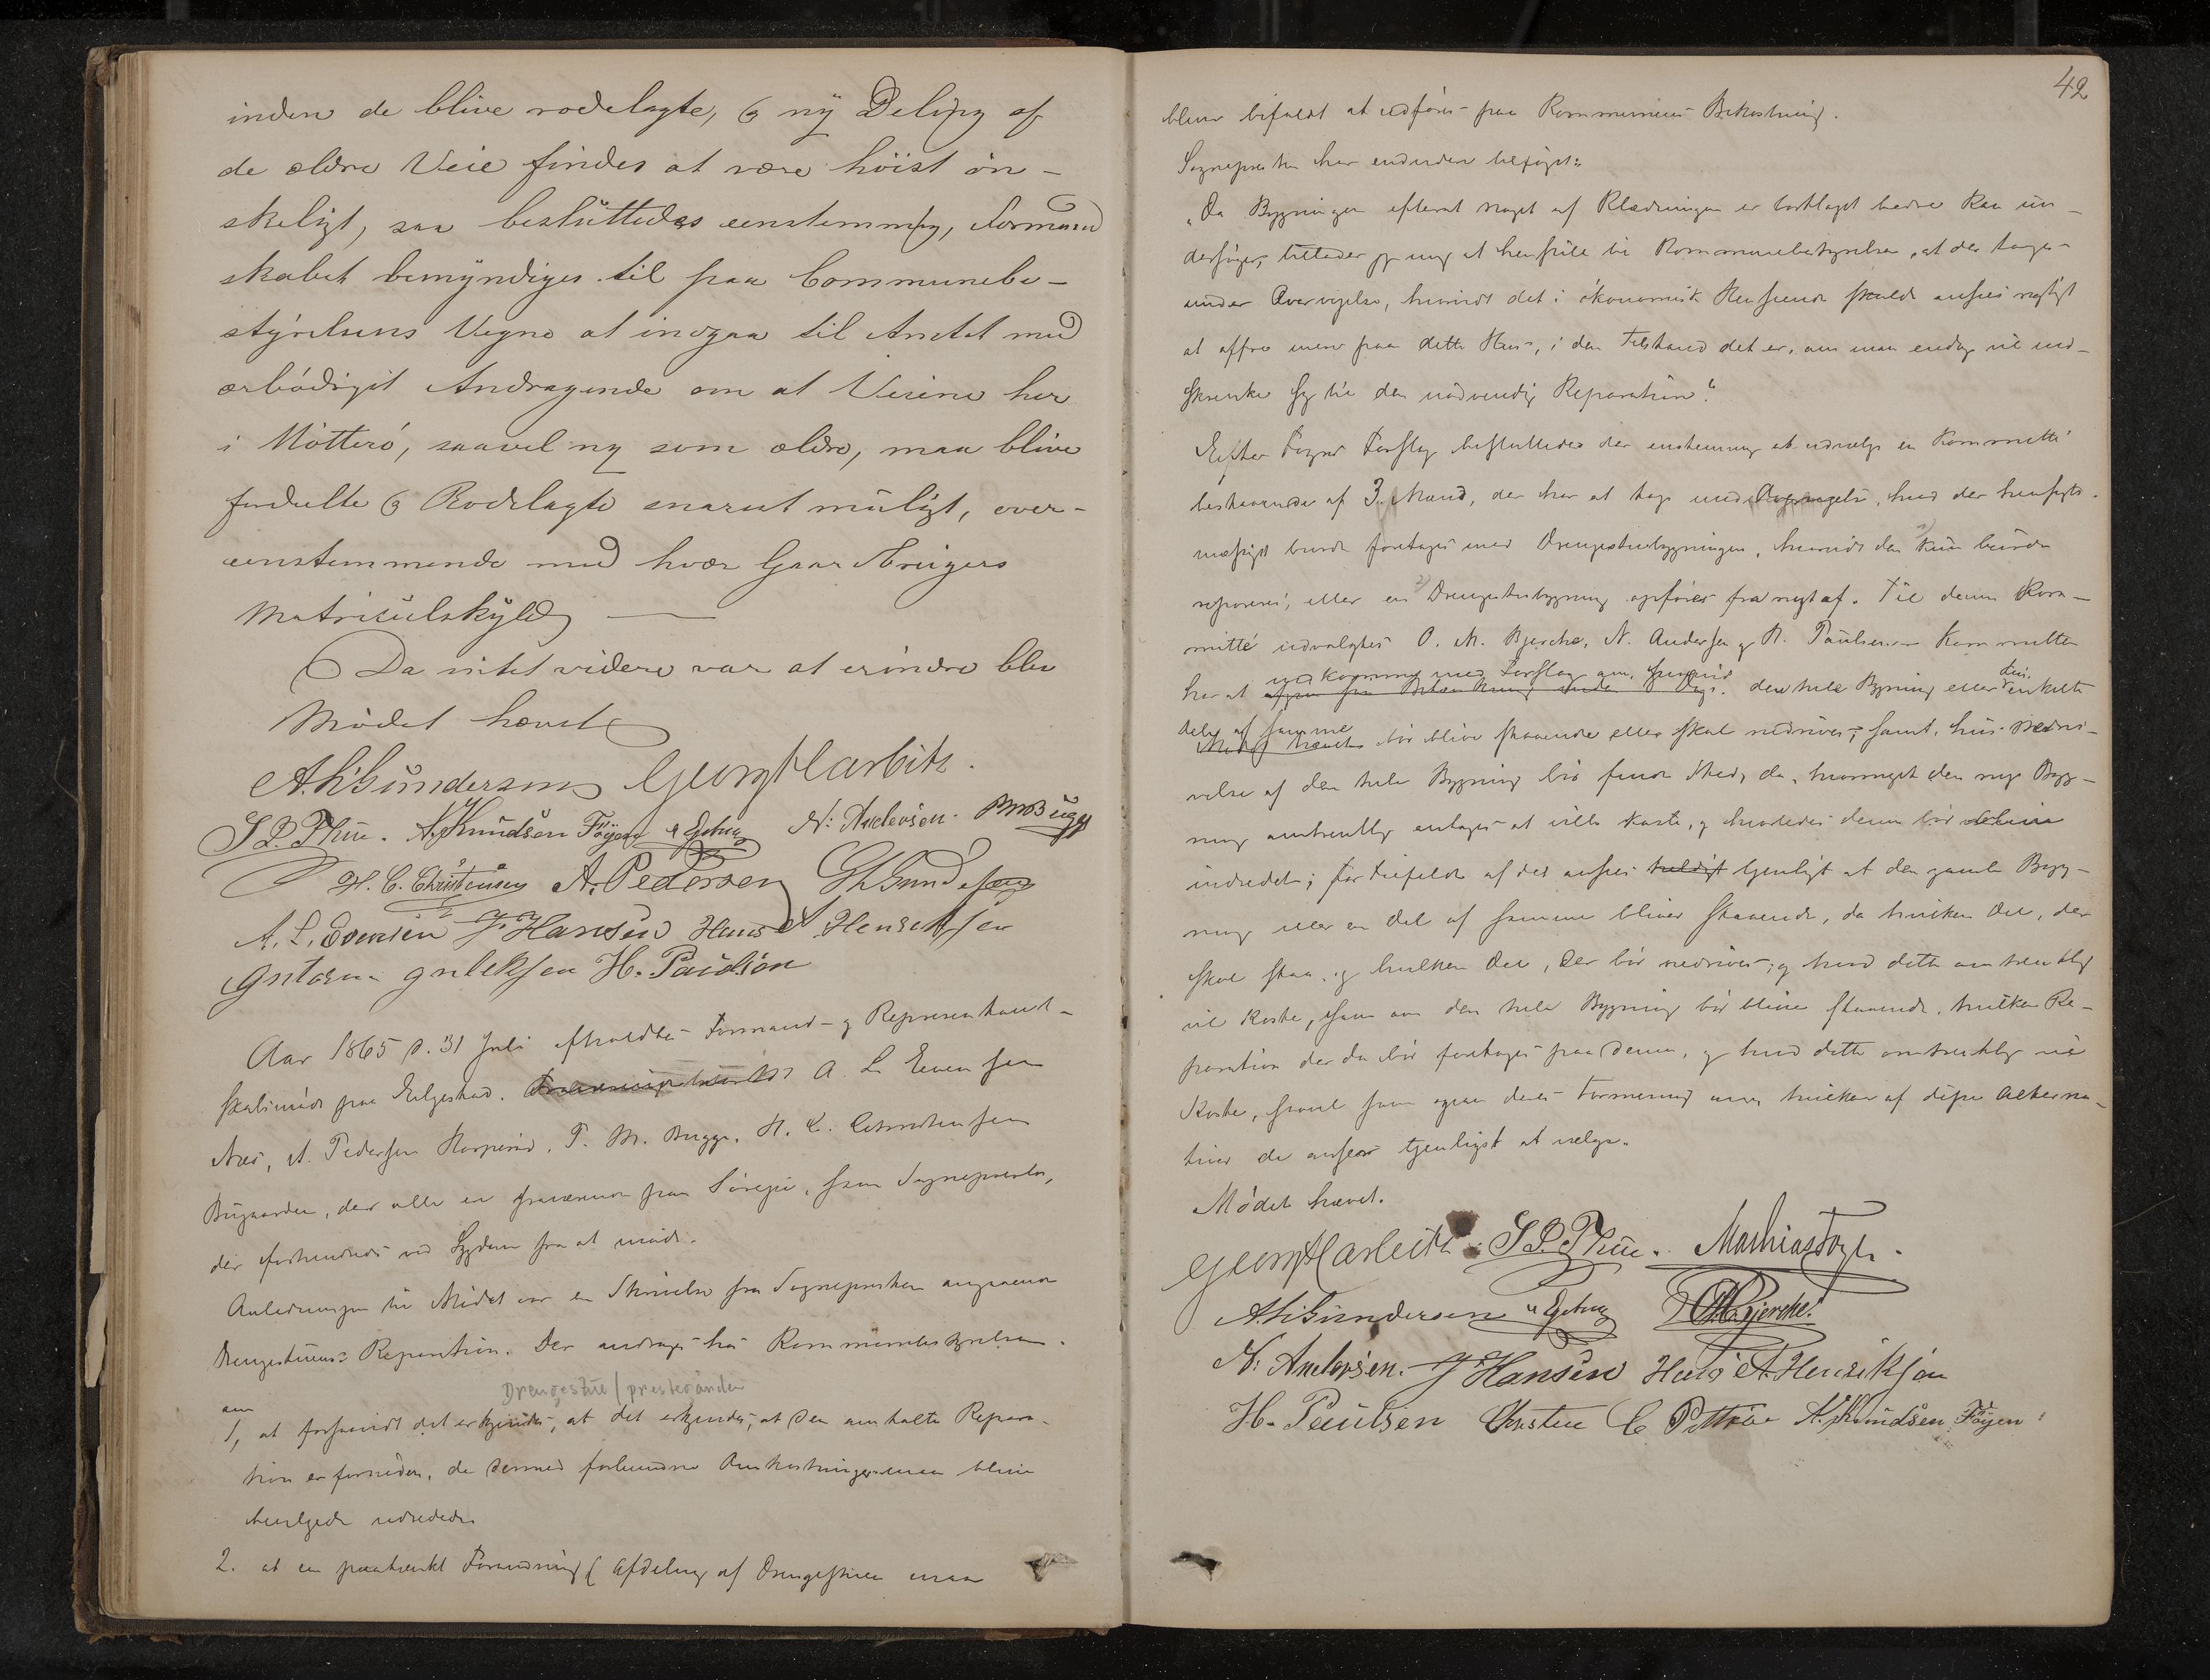 inden de blive rodelagte, og ny Deling af
de ældre Veie findes at være höist ön-
skeligt, saa besluttedes eenstemmig, Formand
skabet bemyndiges til paa Communebe-
styrelsens Vegne at indgaa til Amtet med
ærbödigst Andragende om at Veiene her
i Nötterö, saavel ny som ældre, maa blive
fordeelte og Rodelagte snarest muligt, over-
eenstemmende med hver Gaard
Matriculskyld
Da intet videre var at erindre blev
Mödet hævet
A. H. Gundersen Georg Harbitz.
S. P. Thue. A. Knudsen Föyen Egeberg N. Andersen. Bugge
H. C. Christensen A. Pedersen Gundersen
A. L. Evensen J. Hansen Hans A. Henriksen
H. Paulsen
Aar 1865 d. 31 Juli afholdtes Formand- og Representant-
skabsmöde paa Elgestad. A. L. Evensen
Næs, A. Pedersen, P. M. Bugge, H. C. Christensen
Bugaarden, der alle er fraværende paa Söreise, samt Sognepresten,
der forhindredes ved Sygdom fra at möde.
Anledningen til Mödet var en Skrivelse fra Sognepresten angaaende
Drengestuens Reparation. Der andrages hos Kommunebestyrelsen
Drengestue / presteränder
om
1, at forsaavidt det erkjendes, at det erkjendes, at den omtalte Repara-
tion er fornöden, de dermed forbundne Omkostninger maa blive
udredede
2. at en paatænkt Forandring ( Afdeling af Drengestuen maa
42
bliver bifaldt at udföres paa Kommunens Bekostning.
Sognepresten har endvidere tilföiet:
"Da Bygningen efterat noget af Klædningen er borttaget bedre kan un-
dersöges, tillader jeg mig at henstille til Kommunebestyrelsen, at der tages
under Overveielse, hvorvidt det i ökonomisk Henseende skulde ansees rigtigt
at offre mere paa dette Hus, i den Tilstand det er, om man endog vil ind-
skrænke sig til den nödvendige Reparation."
Efter Fogns Forslag besluttedes der enstemmig at udvælge en Kommitté
bestaaende af 3 Mænd, der har at tage under Overveielse, hvad der hensigts-
mæssigst burde foretages med Drengestuebygningen, hvorvidt den 1) kun burde
repareres, eller en 2) Drengestuebygning opföres fra nyt af. Til denne Kom-
mitté udvalgtes O. M. Bjerche, N. Andersen og H. Paulsen. Kommitten
har at indkomme med Forslag om, hvorvidt den hele Bygning eller enkelte
dele af samme bör blive staaende eller skal nedrives; samt, hvis Nedri-
velse af den hele Bygning bör finde Sted, da, hvormeget den nye Byg-
ning omtrentlig antages at ville koste, og hvorledes denne bör blive
indredet; for Tilfælde af det ansees tjenligst at den gamle Byg-
ning eller en Del af samme bliver staaende, da hvilken Del, der
skal staa og hvilken Del, der bör nedrives; og hvad dette omtrentlig
vil koste, samt om den hele Bygning bör blive staaende, hvilken Re-
paration der da bör foretages paa denne, og hvad dette omtrentlig vil
koste, saavel som ogsaa deres Formening om, hvilken af disse Alterna-
tiver de anser tjenligst at vælge.
Mödet hævet.
Georg Harbitz. S. P. Thue. Mathias Foyn.
A. H. Gundersen Egeberg O. M. Bjerche.
N. Andersen. J. Hansen Hans A. Henriksen
H. Paulsen C A. Knudsen Föyen